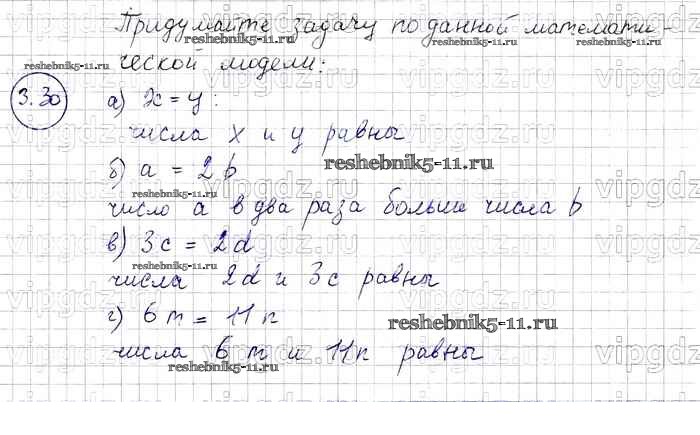 Придумайте задачу по данной математи-
ческой модели:
3.30
а) x = y:
числа x и y равны
б) a = 2b
число a в два раза больше числа b
в) 3c = 2d
числа 2d и 3c равны
г) 6m = 11n
числа 6m и 11n равны
reshebnik5-11.ru
vipgdz.ru